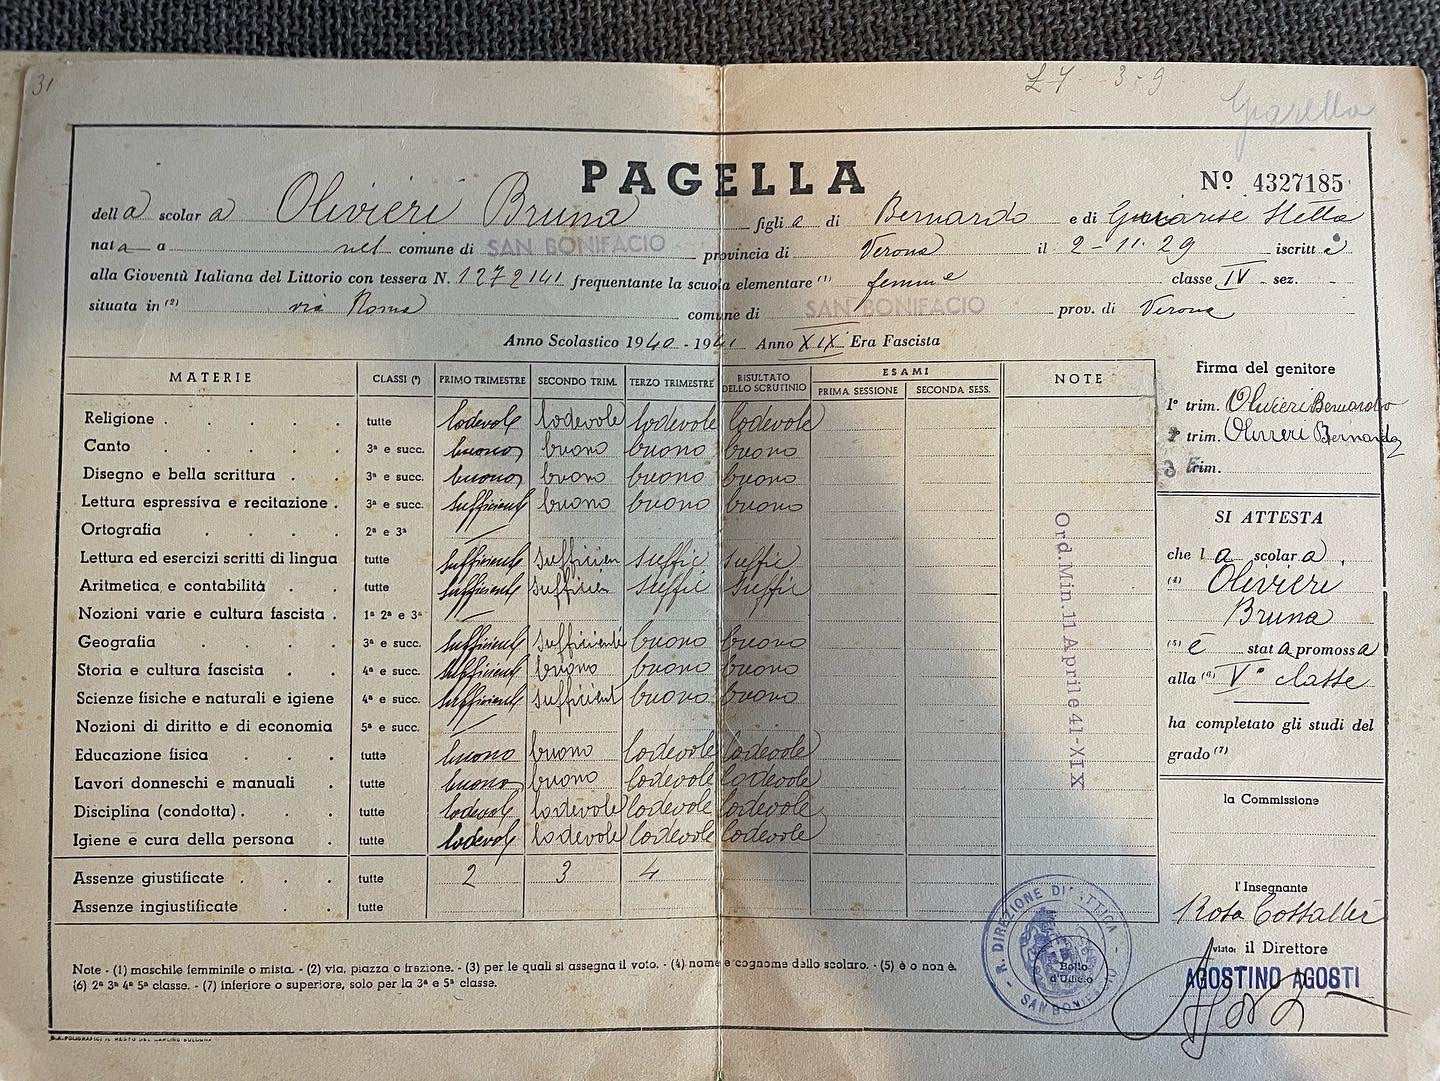 31
£ 7 3:9
PAGELLA
Nº 4327185
della scolara Olivieri Bruna figlia di Bernardo e di Stella
nata a nel comune di SAN BONIFACIO provincia di Verona il 2-11-29 iscritta
alla Gioventù Italiana del Littorio con tessera N. 1272141 frequentante la scuola elementare (1) femme classe IV sez.
situata in (2) via Roma comune di SAN BONIFACIO prov. di Verona
Anno Scolastico 1940 - 1941 Anno XIX Era Fascista
MATERIE CLASSI (*) PRIMO TRIMESTRE SECONDO TRIM. TERZO TRIMESTRE RISULTATO DELLO SCRUTINIO ESAMI PRIMA SESSIONE SECONDA SESS. NOTE
Religione tutte lodevole lodevole lodevole lodevole
Canto 3ª e succ. buono buono buono buono
Disegno e bella scrittura 3ª e succ. buono buono buono buono
Lettura espressiva e recitazione 3ª e succ. sufficient buono buono buono
Ortografia 2ª e 3ª
Lettura ed esercizi scritti di lingua tutte sufficiente sufficien suffic suffic
Aritmetica e contabilità tutte sufficient sufficien suffic suffic
Nozioni varie e cultura fascista 1ª 2ª e 3ª
Geografia 3ª e succ. sufficient sufficiente buono buono
Storia e cultura fascista 4ª e succ. sufficient buono buono buono
Scienze fisiche e naturali e igiene 4ª e succ. sufficient sufficient buono buono
Nozioni di diritto e di economia 5ª e succ.
Educazione fisica tutte buono buono lodevole lodevole
Lavori donneschi e manuali tutte buono buono lodevole lodevole
Disciplina (condotta) tutte lodevole lodevole lodevole lodevole
Igiene e cura della persona tutte lodevole lodevole lodevole lodevole
Assenze giustificate tutte 2 3 4
Assenze ingiustificate tutte
Ord.Min.11 Aprile 41-XIX
Firma del genitore
1º trim. Olivieri Bernardo
2º trim. Olivieri Bernardo
3 trim.
SI ATTESTA
che la scolara
(4) Olivieri
Bruna
(5) è stata promossa
alla (6) Vª classe
ha completato gli studi del
grado (7)
la Commissione
l'Insegnante
Rosa
visto: il Direttore
AGOSTINO AGOSTI
R. DIREZIONE DIDATTICA - SAN BONIFACIO
Bollo
d'Ufficio
Note - (1) maschile femminile o mista. - (2) via, piazza o frazione. - (3) per le quali si assegna il voto. - (4) nome e cognome dello scolaro. - (5) è o non è.
(6) 2ª 3ª 4ª 5ª classe. - (7) inferiore o superiore, solo per la 3ª e 5ª classe.
S.A. POLIGRAFICI IL RESTO DEL CARLINO BOLOGNA